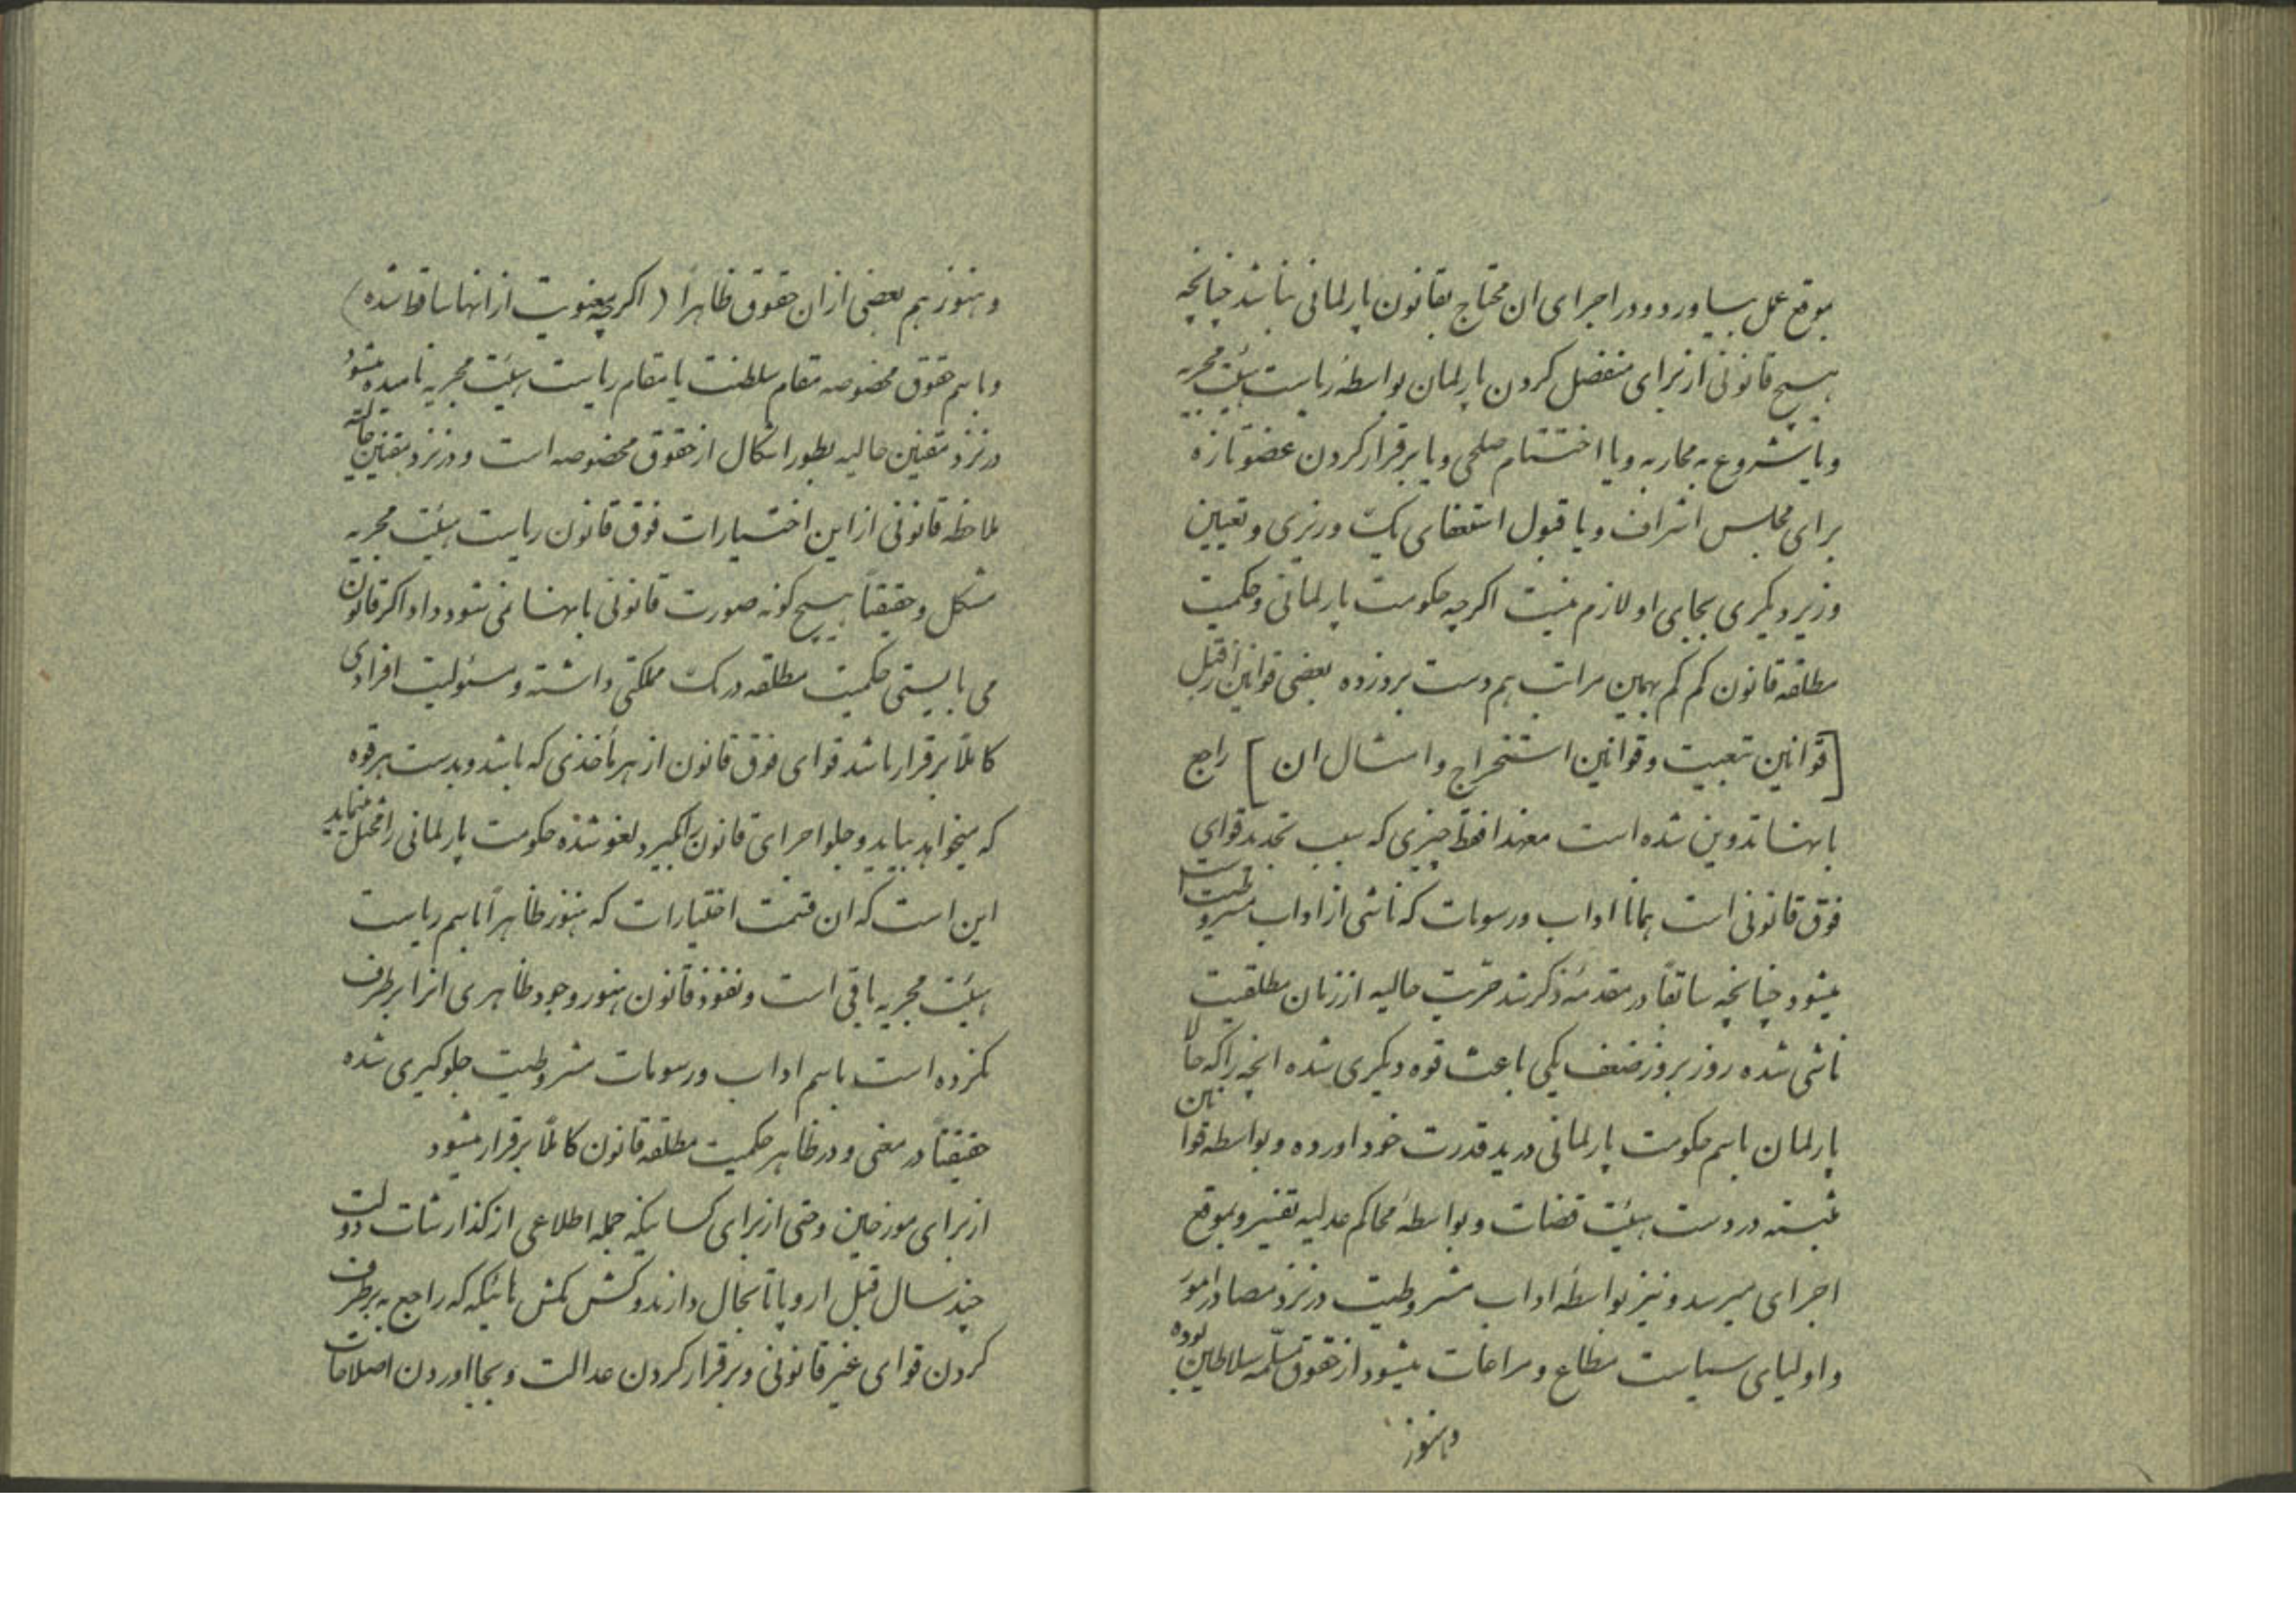 بموقع عمل بیاورد و در اجرای ان محتاج بقانون پارلمانی نباشد چنانچه
هیچ قانونی از برای منفصل کردن پارلمان بواسطهٔ ریاست هیئت مجریه
و یا شروع به محاربه و یا اختتام صلحی و یا برقرار کردن عضو تازه
برای مجلس اشراف و یا قبول استعفای یک وزیری و تعیین
وزیر دیکری بجای او لازم نیست اکرچه حکومت پارلمانی و حکمیت
مطلقه قانون کم کم بهمین مراتب هم دست برد زده بعضی قوانین از قبیل
[قوانین تبعیت و قوانین استخراج و امثال ان] راجع
بانها تدوین شده است معهذا فقط چیزی که سبب تحدید قوای
فوق قانونی است همانا اداب و رسومات که ناشی از اداب مشروطیت است
میشود چنانچه سابقاً در مقدمه ذکر شد حریت حالیه از زمان مطلقیت
ناشی شده روز بروز ضعف یکی باعث قوه دیکری شده انچه را که حالا
پارلمان باسم حکومت پارلمانی در ید قدرت خود اورده و بواسطه قوانین
مثبته در دست هیئت قضات و بواسطهٔ محاکم عدلیه تفسیر و بموقع
اجرای میرسد و نیز بواسطهٔ اداب مشروطیت در نزد مصادر امور
و اولیای سیاست مطاع و مراعات میشود از حقوق مسلمه سلاطین بوده
و هنوز
و هنوز هم بعضی از ان حقوق ظاهراً (اکرچه معنویت از انها ساقط شده)
و باسم حقوق مخصوصه مقام سلطنت یا مقام ریاست هیئت مجریه نامیده میشود
در نزد مقنین حالیه بطور اشکال از حقوق مخصوصه است و در نزد مقنین حالیه
ملاحظه قانونی از این اختیارات فوق قانون ریاست هیئت مجریه
مشکل و حقیقتاً هیچ کونه صورت قانونی بانها نمی شود داد اکر قانون
می بایستی حکمیت مطلقه در یک مملکتی داشته و مسئولیت افرادی
کاملاً برقرار باشد قوای فوق قانون از هر مأخذی که باشد و بدست هر قوه
که میخواهد بیاید و جلو اجرای قانون را بکیرد لغو شده حکومت پارلمانی را مختل مینماید
این است که ان قسمت اختیارات که هنوز ظاهراً باسم ریاست
هیئت مجریه باقی است و نفوذ قانون هنوز وجود ظاهری انرا برطرف
نکرده است باسم اداب و رسومات مشروطیت جلوکیری شده
حقیقتاً در معنی و در ظاهر حکمیت مطلقه قانون کاملاً برقرار میشود
از برای مورخین و حتی از برای کسانیکه جمله اطلاعی از کذارشات دویست
چند سال قبل اروپا تا بحال دارند و کشمکش هائیکه که راجع به برطرف
کردن قوای غیر قانونی و برقرار کردن عدالت و بجا اوردن اصلاحات